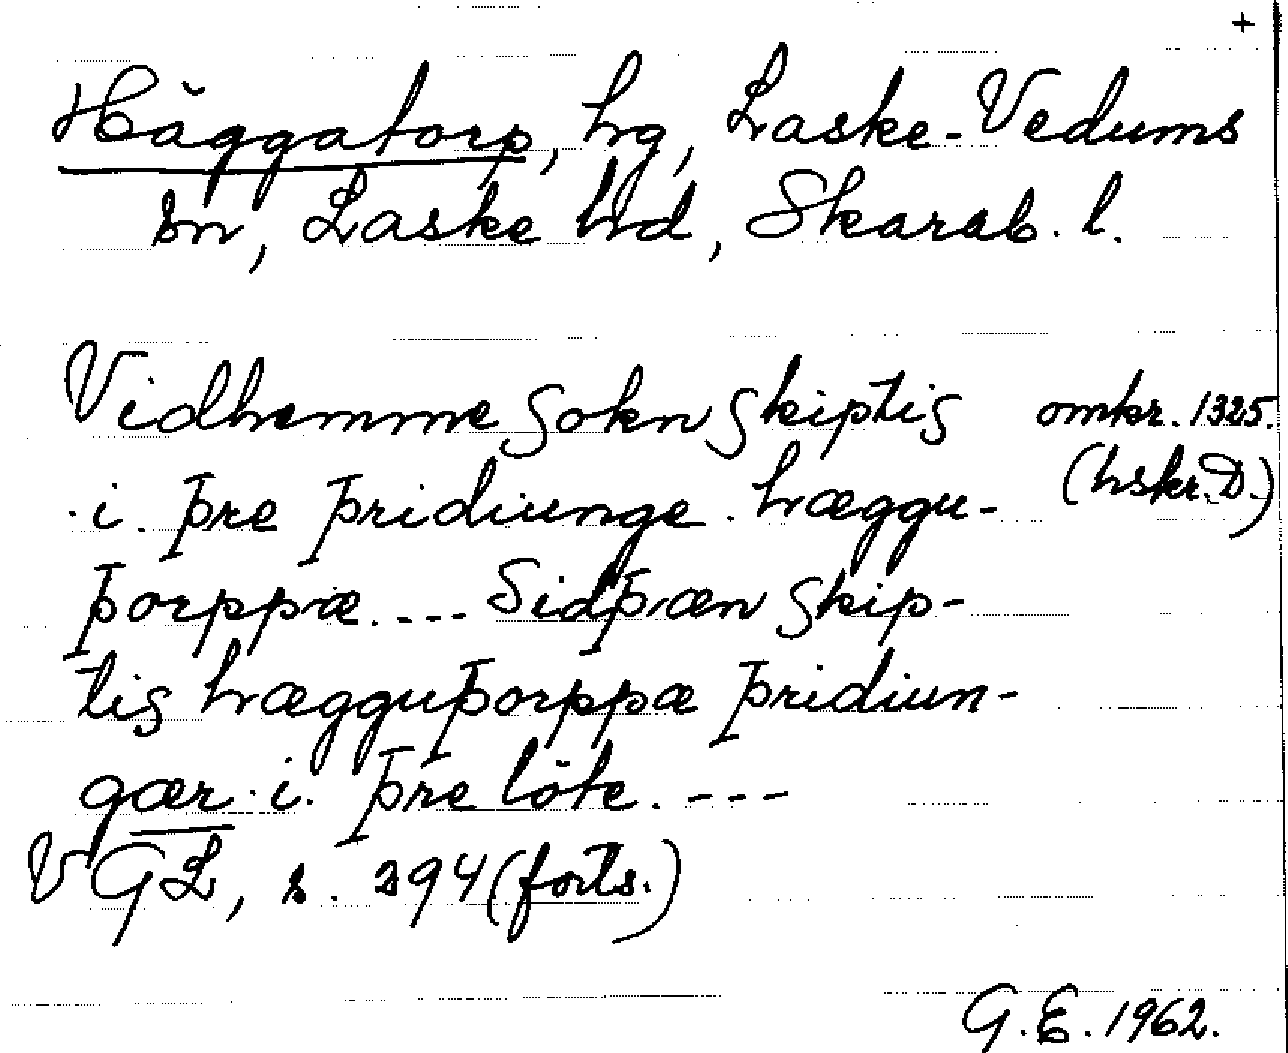 +
Häggatorp, hg, Laske-Vedums
sn, Laske hd, Skarab. l.
Vidhemme sokn skiptis omkr. 1325.
·i· þre þridiunge. hæggu- (hskr. D.)
þorppæ. --- Sidþæn skip-
tis hægguþorppæ þridiun-
gær ·i· þre löte. ---
VGL, s. 294 (forts.)
G.E. 1962.